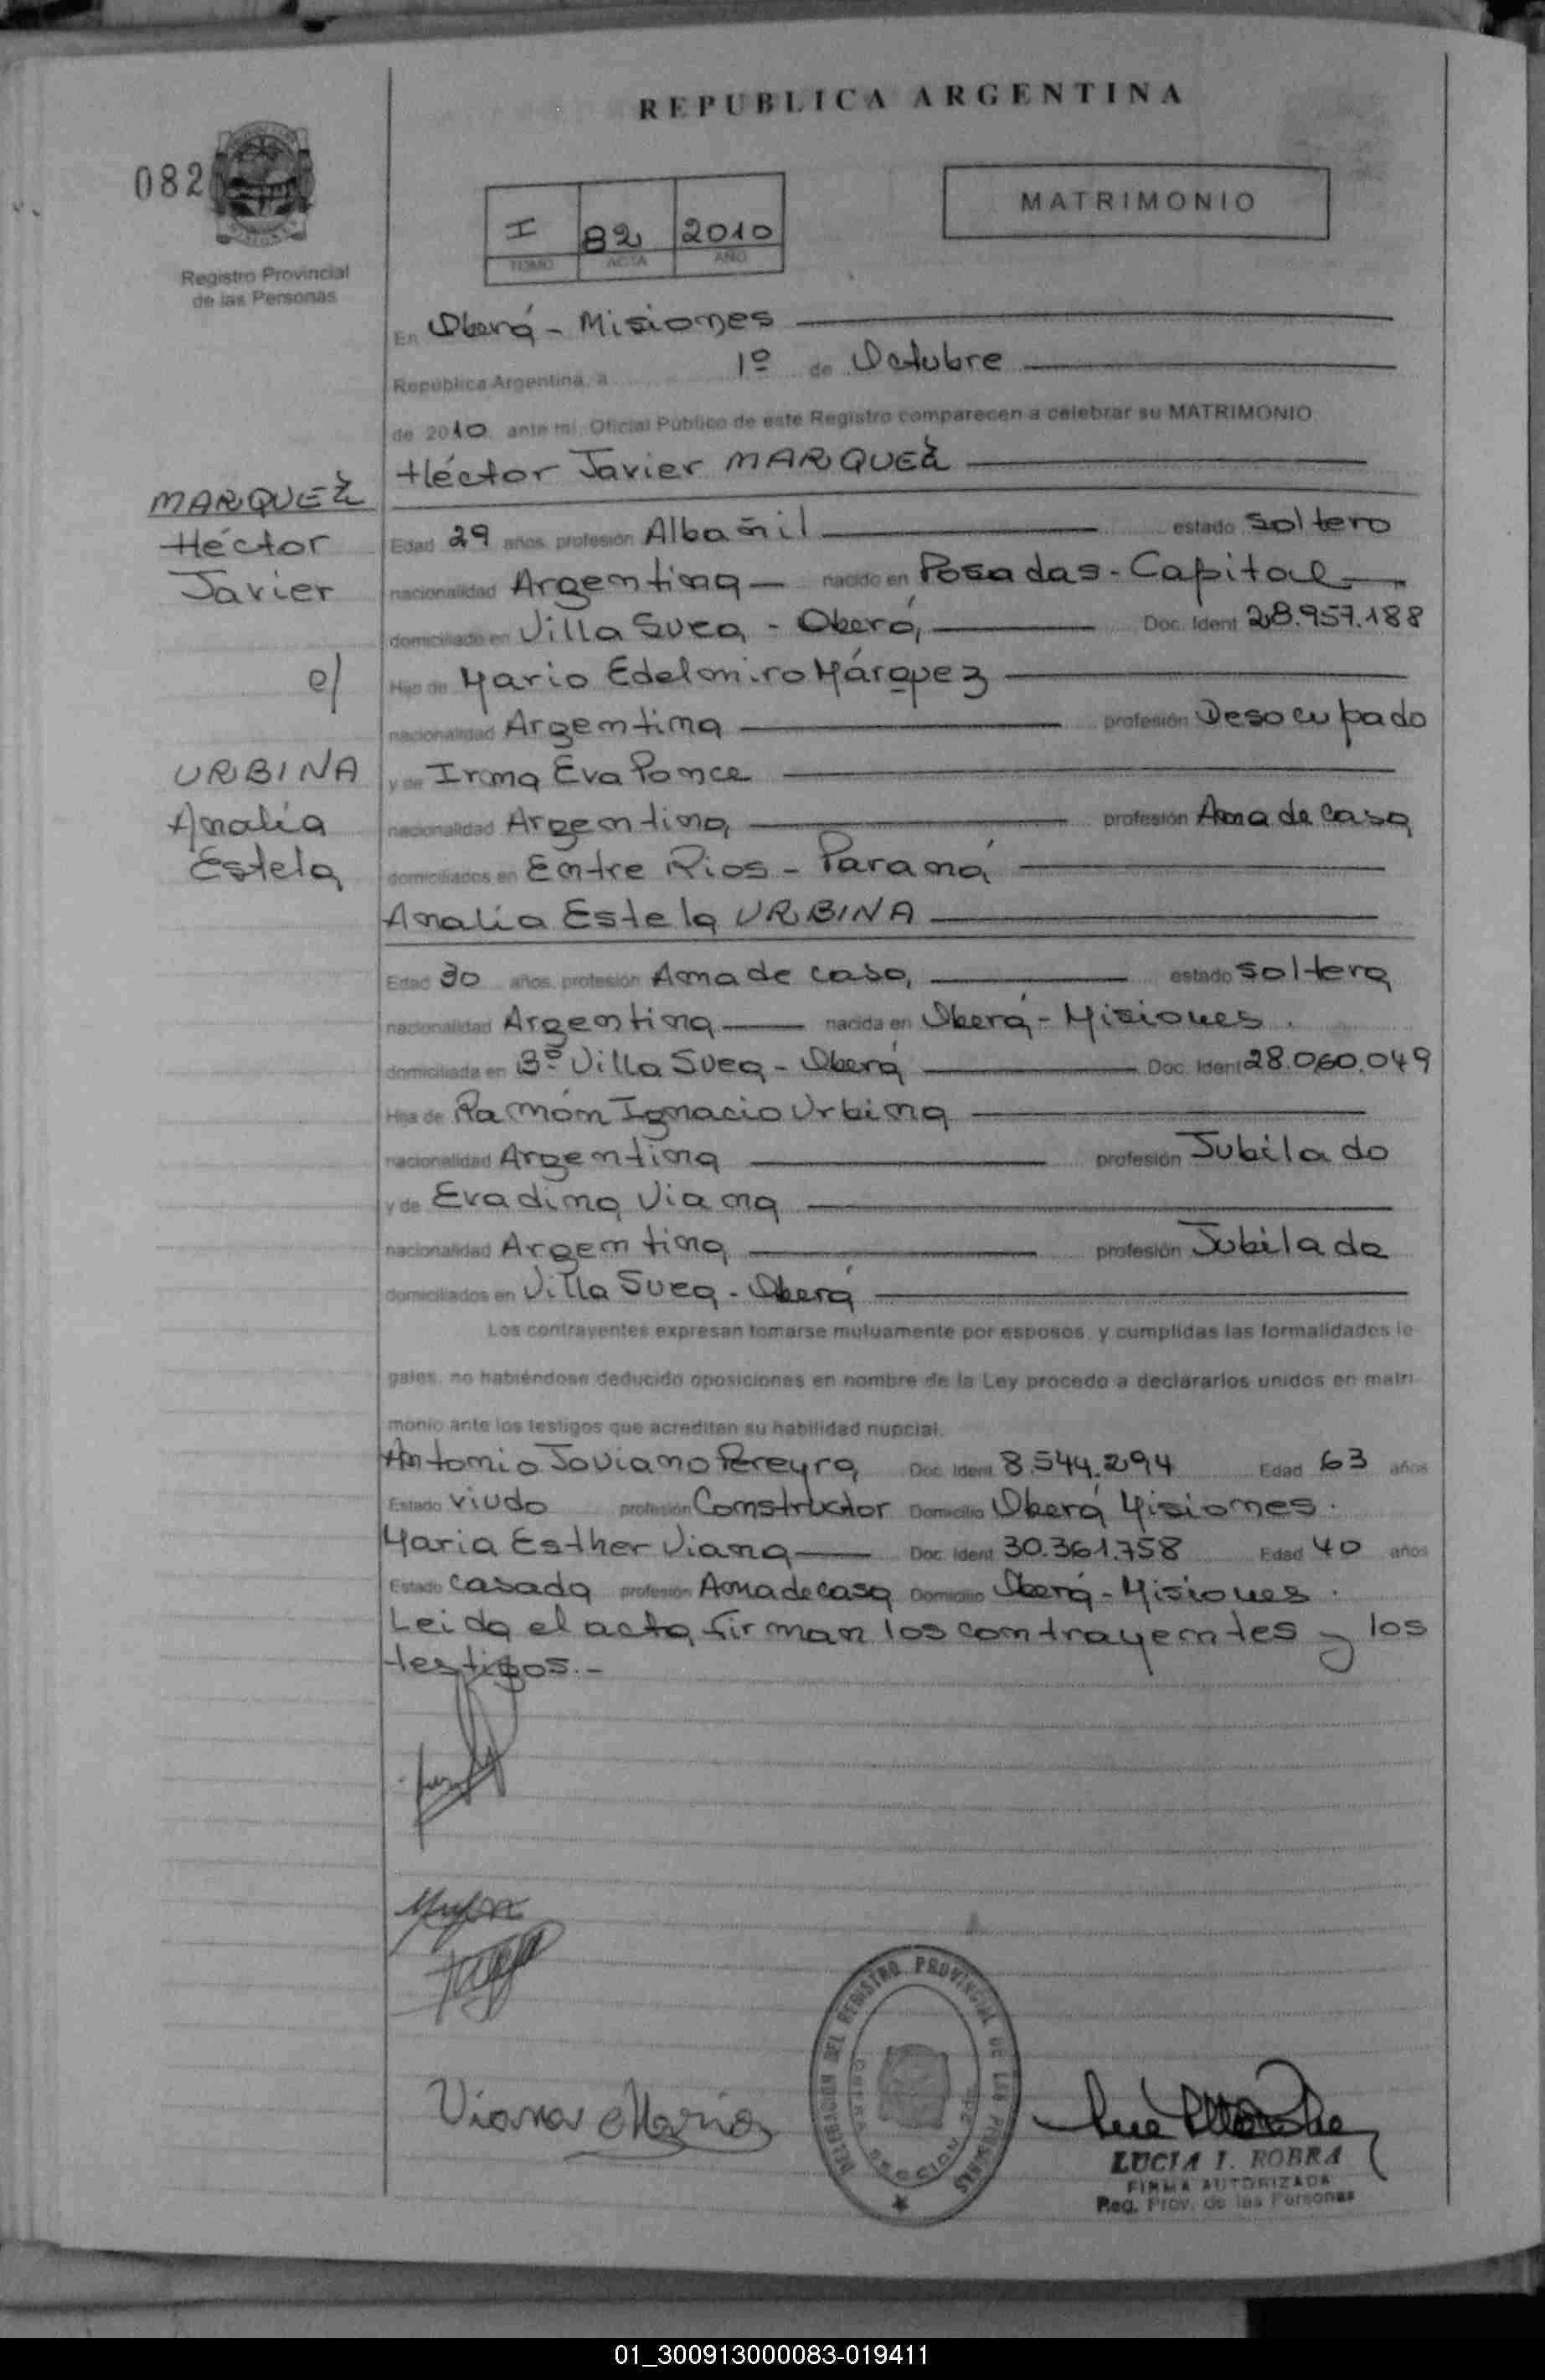 REPUBLICA ARGENTINA
082
Registro Provincial
de las Personas
I 82 2010
TOMO ACTA AÑO
MATRIMONIO
En Oberá - Misiones
República Argentina, a 1º de Octubre
de 2010 ante mi, Oficial Público de este Registro comparecen a celebrar su MATRIMONIO
Héctor Javier MARQUEZ
MARQUEZ
Héctor
Javier
c/
URBINA
Analía
Estela
Edad 29 años, profesión Albañil estado soltero
nacionalidad Argentina nacido en Posadas - Capital
domiciliado en Villa Svea - Oberá Doc. Ident 28.957.188
Hijo de Mario Edelmiro Márquez
nacionalidad Argentina profesión Desocupado
y de Irma Eva Ponce
nacionalidad Argentina profesión Ama de casa
domiciliados en Entre Rios - Paraná
Analía Estela URBINA
Edad 30 años, profesión Ama de casa, estado soltera
nacionalidad Argentina nacida en Oberá - Misiones.
domiciliada en Bº Villa Svea - Oberá Doc. Ident 28.060.049
Hija de Ramón Ignacio Urbina
nacionalidad Argentina profesión Jubilado
y de Evadina Viana
nacionalidad Argentina profesión Jubilada
domiciliados en Villa Svea - Oberá
Los contrayentes expresan tomarse mutuamente por esposos, y cumplidas las formalidades le-
gales, no habiéndose deducido oposiciones en nombre de la Ley procedo a declararlos unidos en matri-
monio ante los testigos que acreditan su habilidad nupcial.
Antonio Joviano Pereyra Doc. Ident 8.544.294 Edad 63 años
Estado viudo profesión Constructor Domicilio Oberá Misiones.
Maria Esther Viana Doc. Ident 30.361.758 Edad 40 años
Estado casada profesión Ama de casa Domicilio Oberá - Misiones.
Leida el acta, firman los contrayentes y los
testigos.-
Viana Maria
DELEGACION DEL REGISTRO PROVINCIAL DE LAS PERSONAS
LUCIA I. ROBRA
FIRMA AUTORIZADA
Reg. Prov. de las Personas
01_300913000083-019411